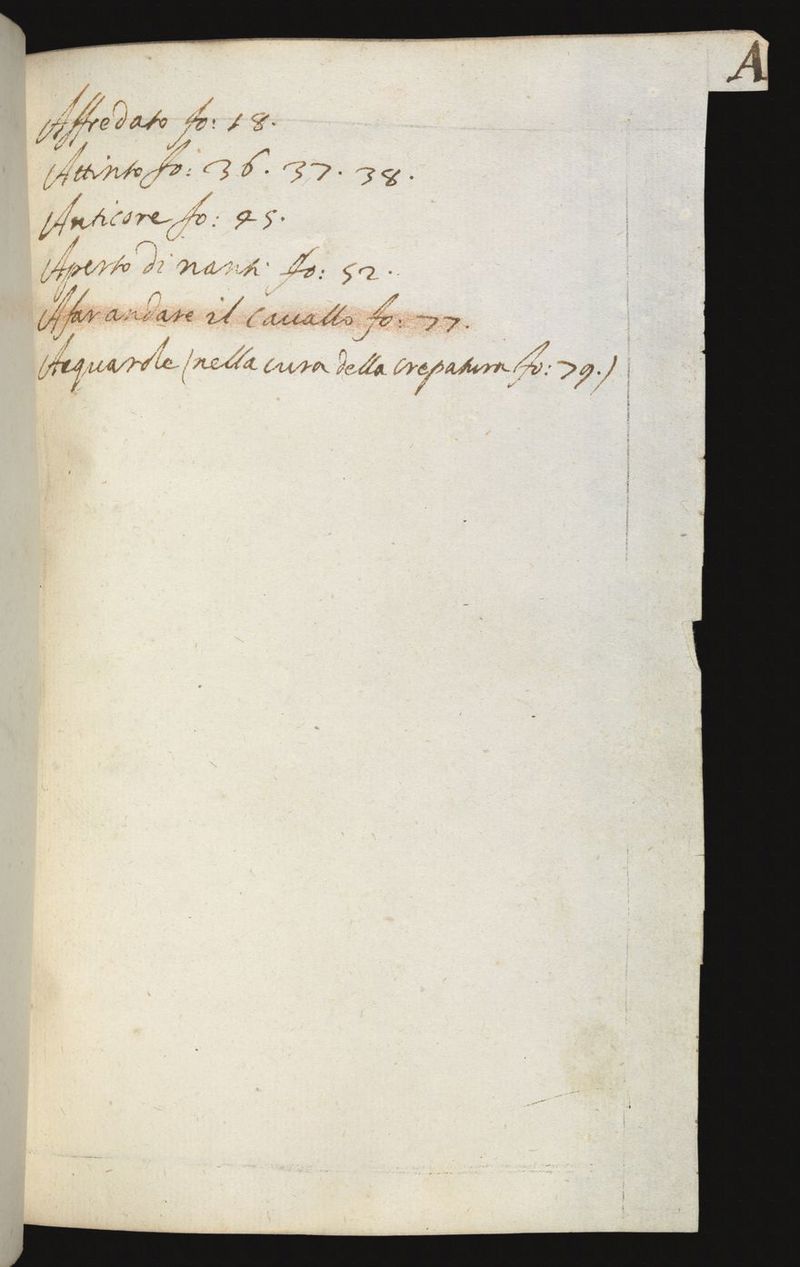 A
Affredato fo: 18.
Attinto fo: 36. 37. 38.
Anticore fo: 45.
Aperto di nanti fo: 52.
A far andare il cauallo fo: 77.
Acquarole (nella cura della crepatura fo: 79.)